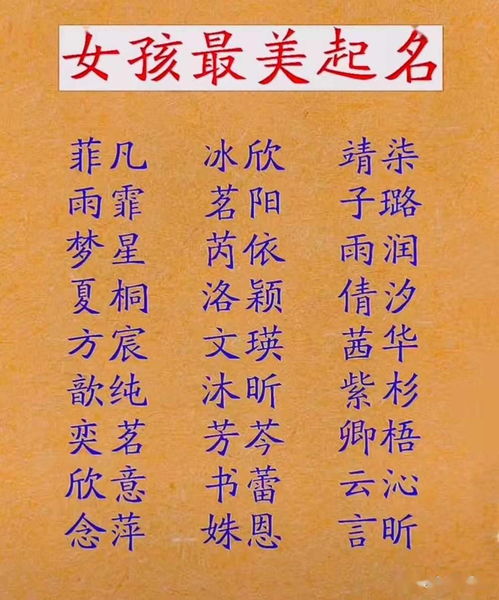 女孩最美起名
菲凡 冰欣 靖柒
雨霏 茗阳 子璐
梦星 芮依 雨润
夏桐 洛颖 倩汐
方宸 文瑛 茜华
歆纯 沐昕 紫杉
奕茗 芳芩 卿梧
欣意 书蕾 云沁
念萍 姝恩 言昕